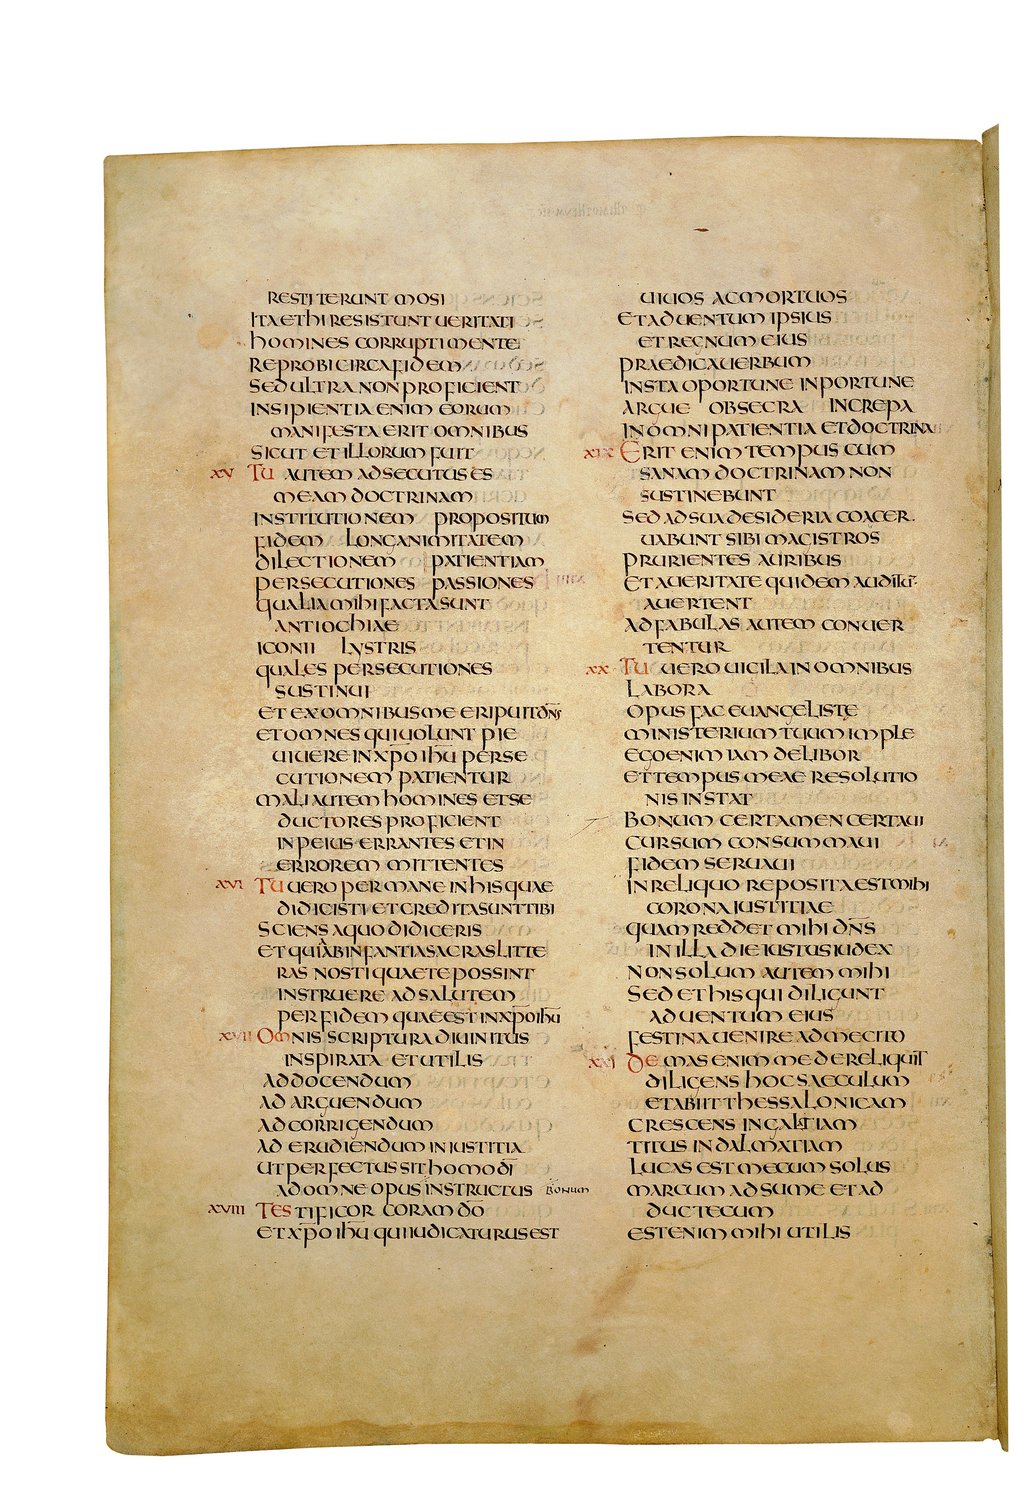 RESTITERUNT MOSI
ITA ET HI RESISTUNT UERITATI
HOMINES CORRUPTI MENTE
REPROBI CIRCA FIDEM
SED ULTRA NON PROFICIENT
INSIPIENTIA ENIM EORUM
MANIFESTA ERIT OMNIBUS
SICUT ET ILLORUM FUIT
XV TU AUTEM ADSECUTUS ES
MEAM DOCTRINAM
INSTITUTIONEM PROPOSITUM
FIDEM LONGANIMITATEM
DILECTIONEM PATIENTIAM
PERSECUTIONES PASSIONES
QUALIA MIHI FACTA SUNT
ANTIOCHIAE
ICONII LYSTRIS
QUALES PERSECUTIONES
SUSTINUI
ET EX OMNIBUS ME ERIPUIT DN̄S
ET OMNES QUI UOLUNT PIE
UIUERE IN XP̄O IHŪ PERSE
CUTIONEM PATIENTUR
MALI AUTEM HOMINES ET SE
DUCTORES PROFICIENT
IN PEIUS ERRANTES ET IN
ERROREM MITTENTES
XVI TU UERO PERMANE IN HIS QUAE
DIDICISTI ET CREDITA SUNT TIBI
SCIENS A QUO DIDICERIS
ET QUIA AB INFANTIA SACRAS LITTE
RAS NOSTI QUAE TE POSSINT
INSTRUERE AD SALUTEM
PER FIDEM QUAE EST IN XP̄O IHŪ
XVII OMNIS SCRIPTURA DIUINITUS
INSPIRATA ET UTILIS
AD DOCENDUM
AD ARGUENDUM
AD CORRIGENDUM
AD ERUDIENDUM IN IUSTITIA
UT PERFECTUS SIT HOMO DĪ
AD OMNE OPUS INSTRUCTUS BONUM
XVIII TESTIFICOR CORAM DŌ
ET XP̄O IHŪ QUI IUDICATURUS EST
UIUOS AC MORTUOS
ET ADUENTUM IPSIUS
ET REGNUM EIUS
PRAEDICA UERBUM
INSTA OPORTUNE INPORTUNE
ARGUE OBSECRA INCREPA
IN OMNI PATIENTIA ET DOCTRINA
XIX ERIT ENIM TEMPUS CUM
SANAM DOCTRINAM NON
SUSTINEBUNT
SED AD SUA DESIDERIA COACER
UABUNT SIBI MAGISTROS
PRURIENTES AURIBUS
ET A UERITATE QUIDEM AUDITŪ
AUERTENT
AD FABULAS AUTEM CONUER
TENTUR
XX TU UERO UIGILA IN OMNIBUS
LABORA
OPUS FAC EUANGELISTE
MINISTERIUM TUUM IMPLE
EGO ENIM IAM DELIBOR
ET TEMPUS MEAE RESOLUTIO
NIS INSTAT
BONUM CERTAMEN CERTAUI
CURSUM CONSUMMAUI
FIDEM SERUAUI
IN RELIQUO REPOSITA EST MIHI
CORONA IUSTITIAE
QUAM REDDET MIHI DN̄S
IN ILLA DIE IUSTUS IUDEX
NON SOLUM AUTEM MIHI
SED ET HIS QUI DILIGUNT
ADUENTUM EIUS
FESTINA UENIRE AD ME CITO
XXI DEMAS ENIM ME DERELIQUIT
DILIGENS HOC SAECULUM
ET ABIIT THESSALONICAM
CRESCENS IN GALATIAM
TITUS IN DALMATIAM
LUCAS EST MECUM SOLUS
MARCUM ADSUME ET AD
DUC TECUM
EST ENIM MIHI UTILIS